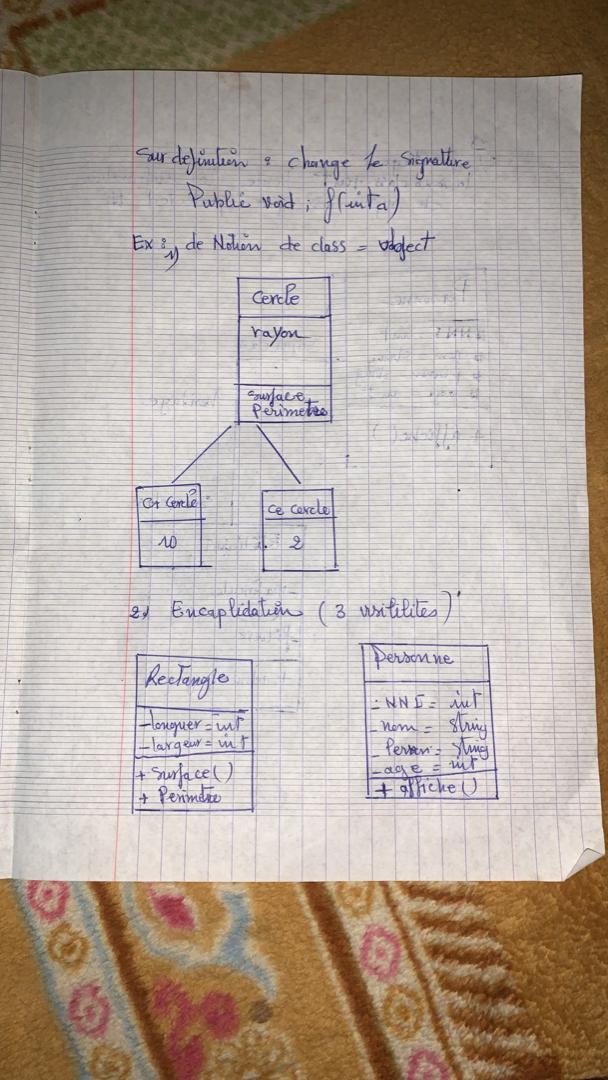 Surdefinition : change le signature
Public void ; f(int a)
Ex : 1) de Notion de class = object
Cercle
rayon
surface
Perimetre
C1 Cercle
10
Ce Cercle
2
2) Encaplidation ( 3 visitilites )
Rectangle
- longuer = int
- largeur = int
+ Surface ( )
+ Perimetre
Personne
- NNI = int
- nom = string
- = string
- age = int
+ affiche ( )